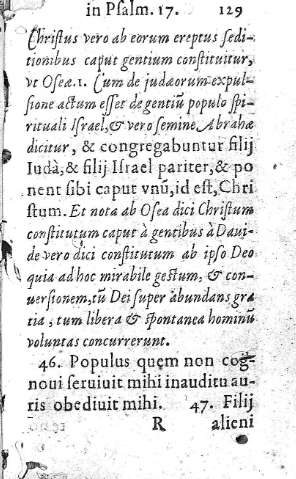 in Psalm. 17. 129
Christus vero ab eorum ereptus sedi-
tionibus caput gentium constituitur,
vt Oseæ.1. Cum de judæorum expul-
sione actum esset de gentiū populo spi-
rituali Israel, & vero semine Abrahæ
dicitur, & congregabuntur filij
Iudà, & filij Israel pariter, & po
nent sibi caput vnū, id est, Chri
stum. Et nota ab Osea dici Christum
constitutum caput à gentibus à Daui-
de vero dici constitutum ab ipso Deo
quia ad hoc mirabile gestum, & con-
uersionem, tū Dei super abundans gra
tia, tum libera & spontanea hominū
voluntas concurrerunt.
46. Populus quem non cog-
noui seruiuit mihi in auditu au-
ris obediuit mihi. 47. Filij
R alieni